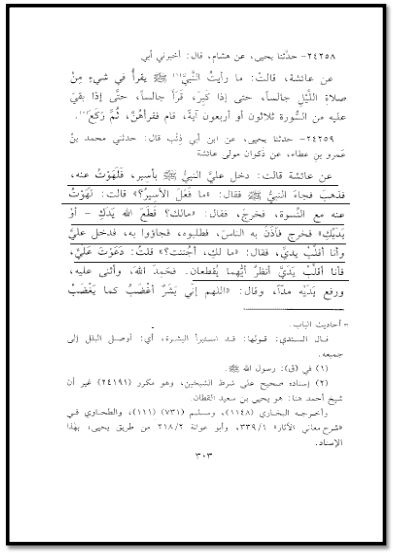 ٢٤٢٥٨- حدثنا يحيى، عن هشام، قال: أخبرني أبي
عن عائشة، قالت: ما رأيتُ النَّبيَّ(١) ﷺ يقرأُ في شيءٍ مِنْ
صلاةِ اللَّيْلِ جالساً، حتى إذا كَبِرَ، قَرَأَ جالساً، حتَّى إذا بقيَ
عليه من السُّورة ثلاثون أو أربعونَ آيةً، قام فقرأهُنَّ، ثُمَّ رَكَعَ(٢).
٢٤٢٥٩- حدثنا يحيى، عن ابن أبي ذئب قال: حدثني محمد بنُ
عَمرو بنِ عطاء، عن ذكوان مولى عائشة
عن عائشة قالت: دخل عليَّ النبيُّ ﷺ بأسيرٍ، فَلَهَوْتُ عنه،
فذهبَ فجاءَ النبيُّ ﷺ فقال: «ما فَعَلَ الأسيرُ؟» قالت: لَهَوْتُ
عنه مع النِّسوة، فخرجَ، فقال: «مالك؟ قَطَعَ الله يَدَكِ - أوْ
يَدَيْكِ» فخرج فآذَنَ به الناسَ، فطلبوه، فجاؤوا به، فدخل عليَّ
وأنا أقلِّبُ يديَّ، فقال: «ما لكِ، أجُننت؟» قلتُ: دَعَوْتَ عَليَّ،
فأنا أقلِّبُ يَدَيَّ أنظرُ أيُّهما يُقطعان. فحَمِدَ اللهَ، وأثنى عليه،
ورفع يَدَيْه مدّاً، وقال: «اللهم إنِّي بَشَرٌ أغْضَبُ كما يَغْضَبُ
= أحاديث الباب.
قال السندي: قولها: قد استبرأ البشرة، أي: أوصل البلل إلى
جميعه.
(١) في (ق): رسول الله ﷺ.
(٢) إسناده صحيح على شرط الشيخين، وهو مكرر (٢٤١٩١) غير أن
شيخ أحمد هنا: هو يحيى بن سعيد القطان.
وأخرجه البخاري (١١٤٨)، ومسلم (٧٣١) (١١١)، والطحاوي في
«شرح معاني الآثار» ٣٣٩/١، وأبو عوانة ٢١٨/٢ من طريق يحيى، بهذا
الإسناد.
٣٠٣